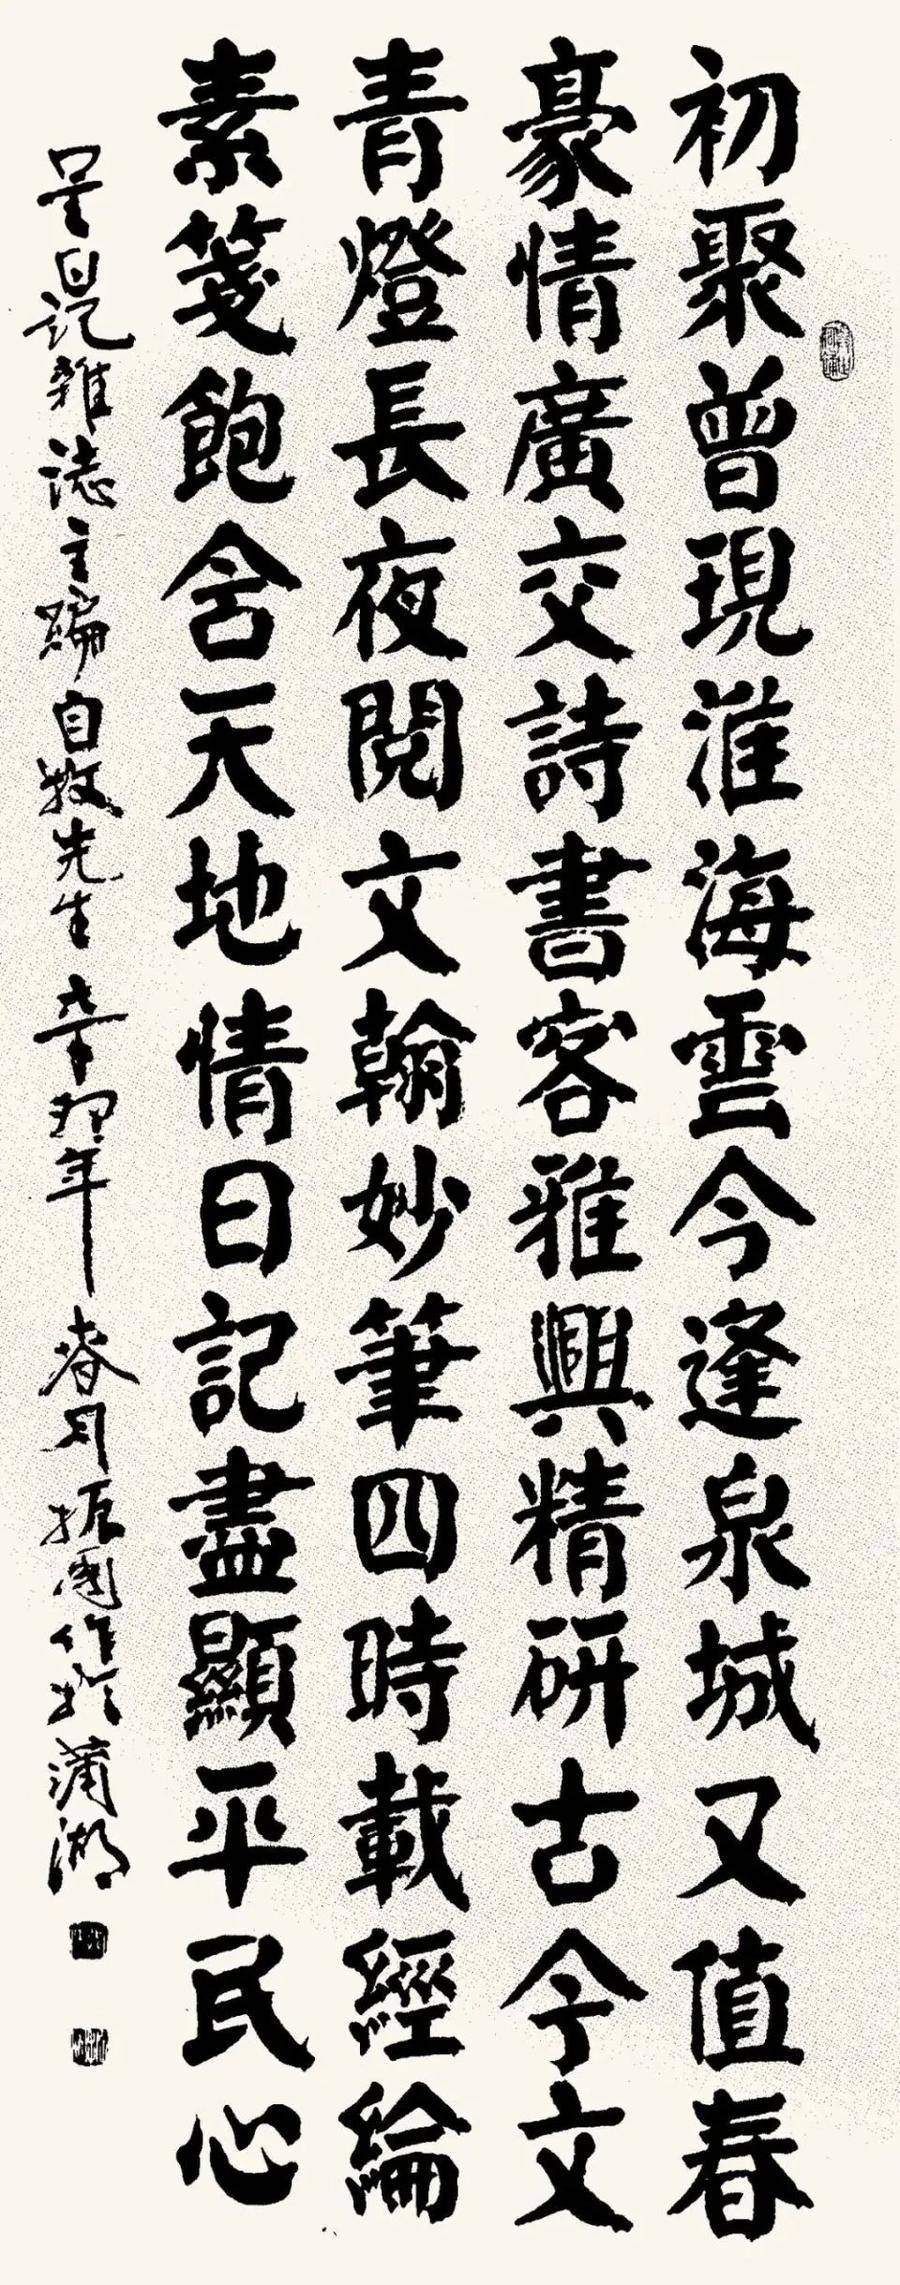 初聚曾現淮海雲今逢泉城又值春
豪情廣交詩書客雅興精研古今文
青燈長夜閱文翰妙筆四時載經綸
素箋飽含天地情日記盡顯平民心
呈日記雜誌主編自牧先生辛卯年春月振國作於蒲湖